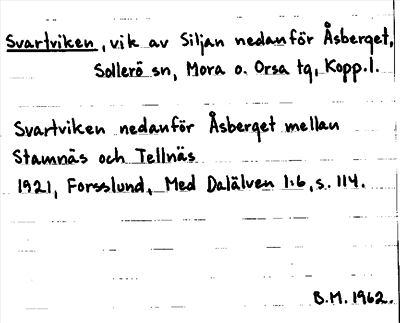 Svartviken, vik av Siljan nedanför Åsberget,
Sollerö sn, Mora o. Orsa tg, Kopp.l.
Svartviken nedanför Åsberget mellan
Stamnäs och Tellnäs
1921, Forsslund, Med Dalälven 1:6, s. 114.
B.M. 1962.